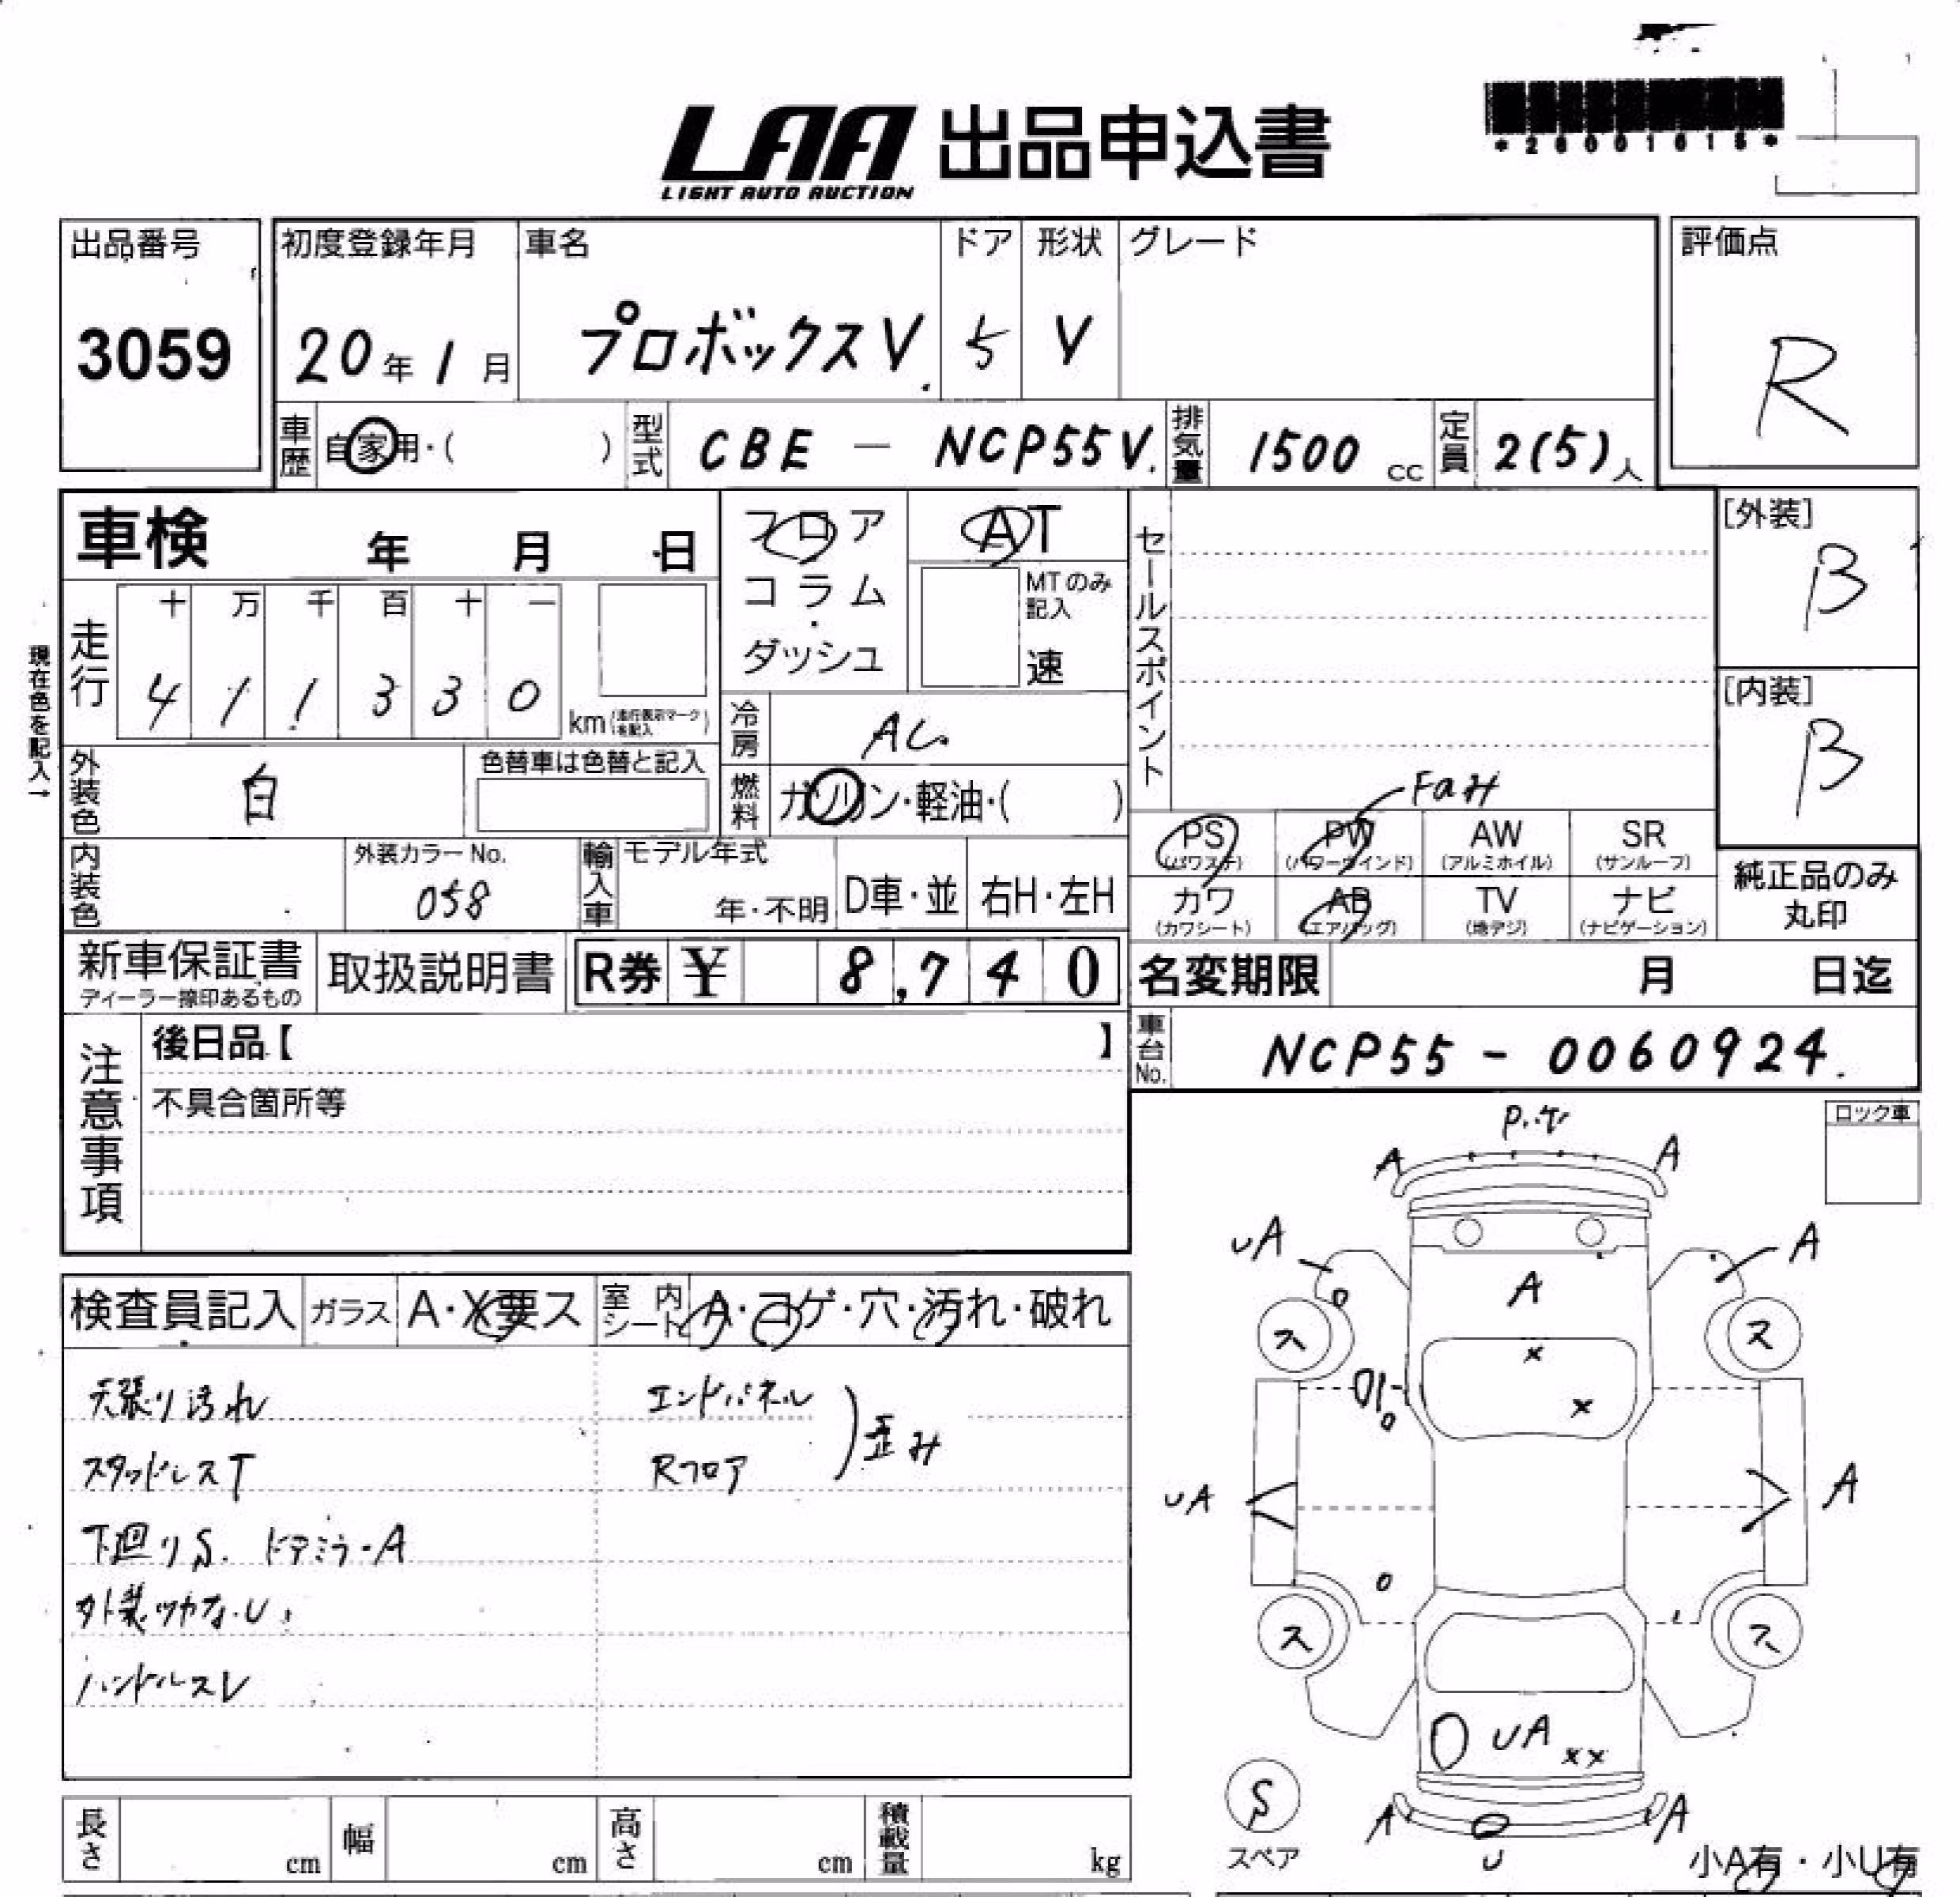 LAA 出品申込書
LIGHT AUTO AUCTION
*26001615*
出品番号
3059
初度登録年月
20年1月
車名
プロボックスV.
ドア
5
形状
V
グレード
評価点
R
車歴
自家用・( )
型式
CBE - NCP55V.
排気量
1500 cc
定員
2(5)人
車検 年 月 日
フロア
コラム・
ダッシュ
AT
MTのみ
記入
速
セールスポイント
[外装]
B
[内装]
B
現在色を記入→
走行
十 万 千 百 十 一
4 1 1 3 3 0
km(走行表示マークを記入)
冷房
AC.
外装色
白
色替車は色替と記入
燃料
ガソリン・軽油・( )
PS
(パワステ)
PW
(パワーウインド)
AW
(アルミホイル)
SR
(サンルーフ)
内装色
外装カラーNo.
058
輸入車
モデル年式
年・不明
D車・並
右H・左H
カワ
(カワシート)
AB
(エアバッグ)
TV
(地デジ)
ナビ
(ナビゲーション)
純正品のみ
丸印
新車保証書
ディーラー捺印あるもの
取扱説明書
R券 ¥ 8,740
名変期限 月 日迄
注意事項
後日品【 】
不具合箇所等
車台No.
NCP55 - 0060924.
ロック車
検査員記入
ガラス
A・X要ス
室内シート
A・コゲ・穴・汚れ・破れ
天張り汚れ
スタッドレスT
下廻りS. ドアミラーA
外装ツカナ.U.
ハンドルスレ
エンドパネル
Rフロア
歪み
A A
UA A
A
ス ス
x
x
UA A
ス ス
UA xx
S
スペア
A A
U
小A有・小U有
長さ cm
幅 cm
高さ cm
積載量 kg